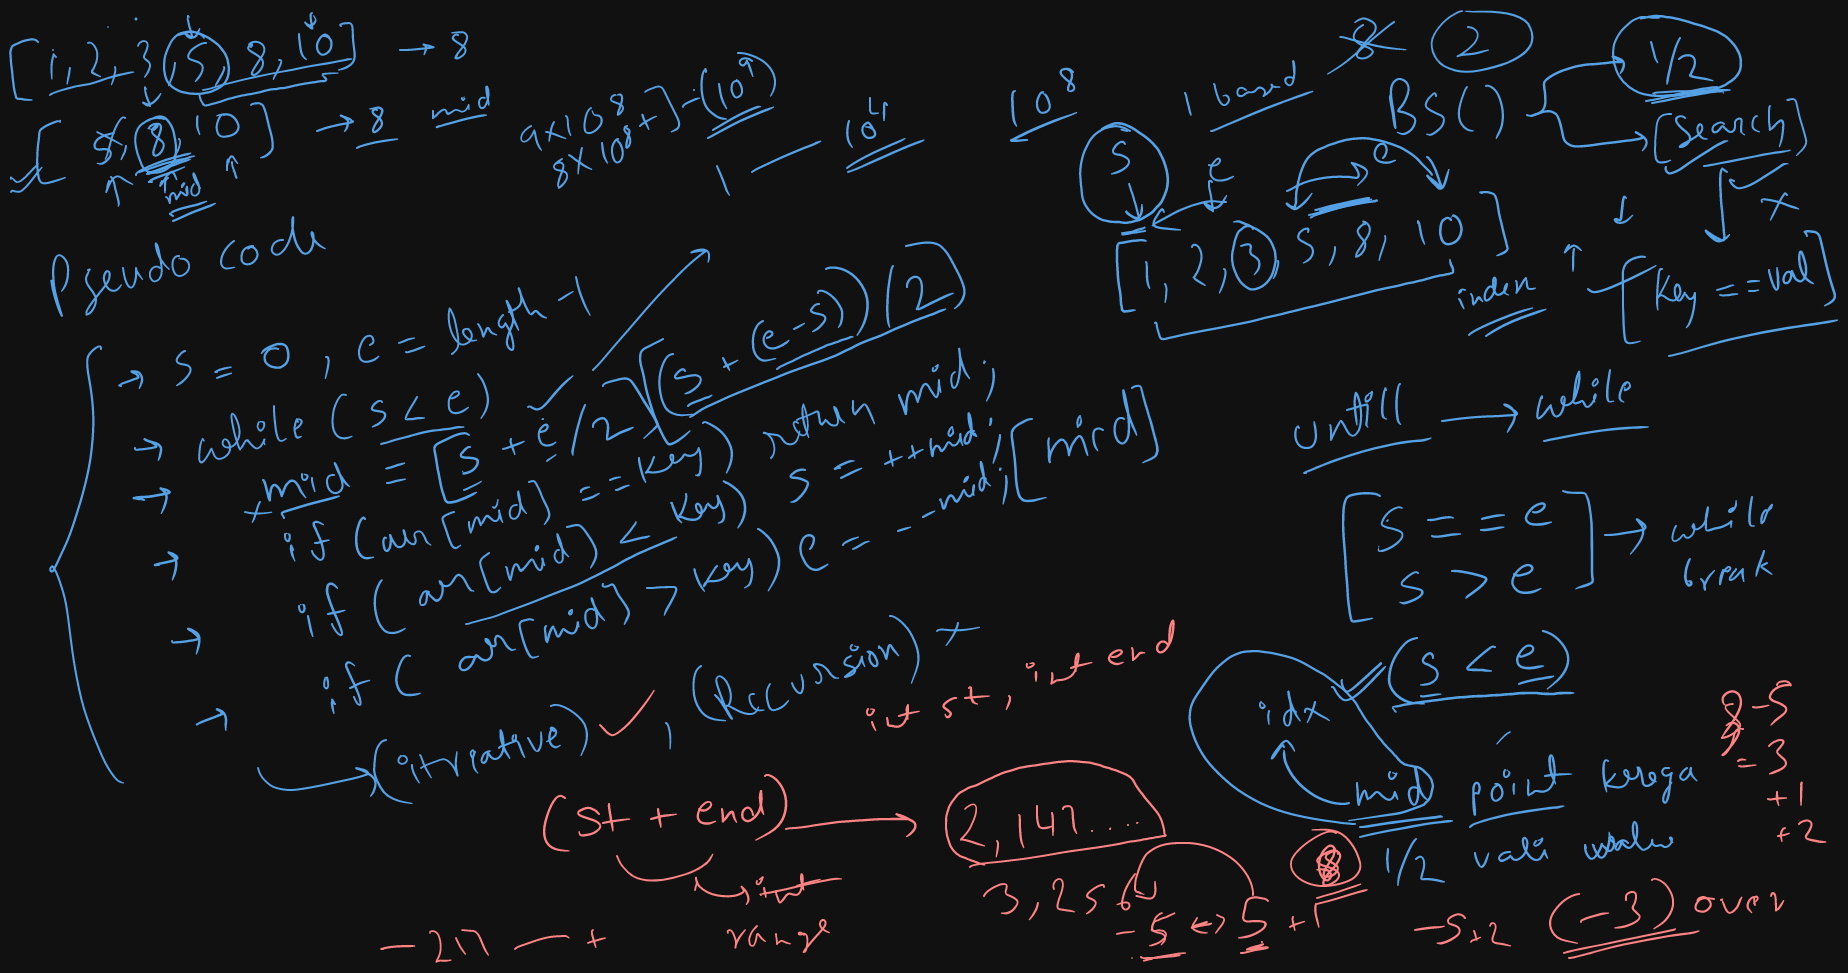 [1, 2, 3, 5, 8, 10] → 8
[5, 8, 10] → 8 mid
mid
9×10^8
8×10^8 +] - (10^9)
1 — 10^4
10^8
1 based
8 2
BS()
1/2
[Search]
×
[Key == val]
s
e
e
[1, 2, 3, 5, 8, 10]
index
Pseudo code
→ s = 0, e = length - 1
→ while (s < e)
→ mid = [s + e / 2] [(s + (e - s)) / 2]
→ if (arr[mid] == key) return mid;
→ if (arr[mid] < key) s = ++mid;
→ if (arr[mid] > key) e = --mid; [mid]
(itriative) ✓, (Recursion) ×
untill → while
[s == e
s > e] → while
break
(s < e)
idx
mid point krega
1/2 vali value
int st, int end
(st + end) → 2,147....
int
range
3,256
-217 — +
-5 ↔ 5 + 1
8
8 - 5
= 3
+1
+2
-5+2 (-3) over